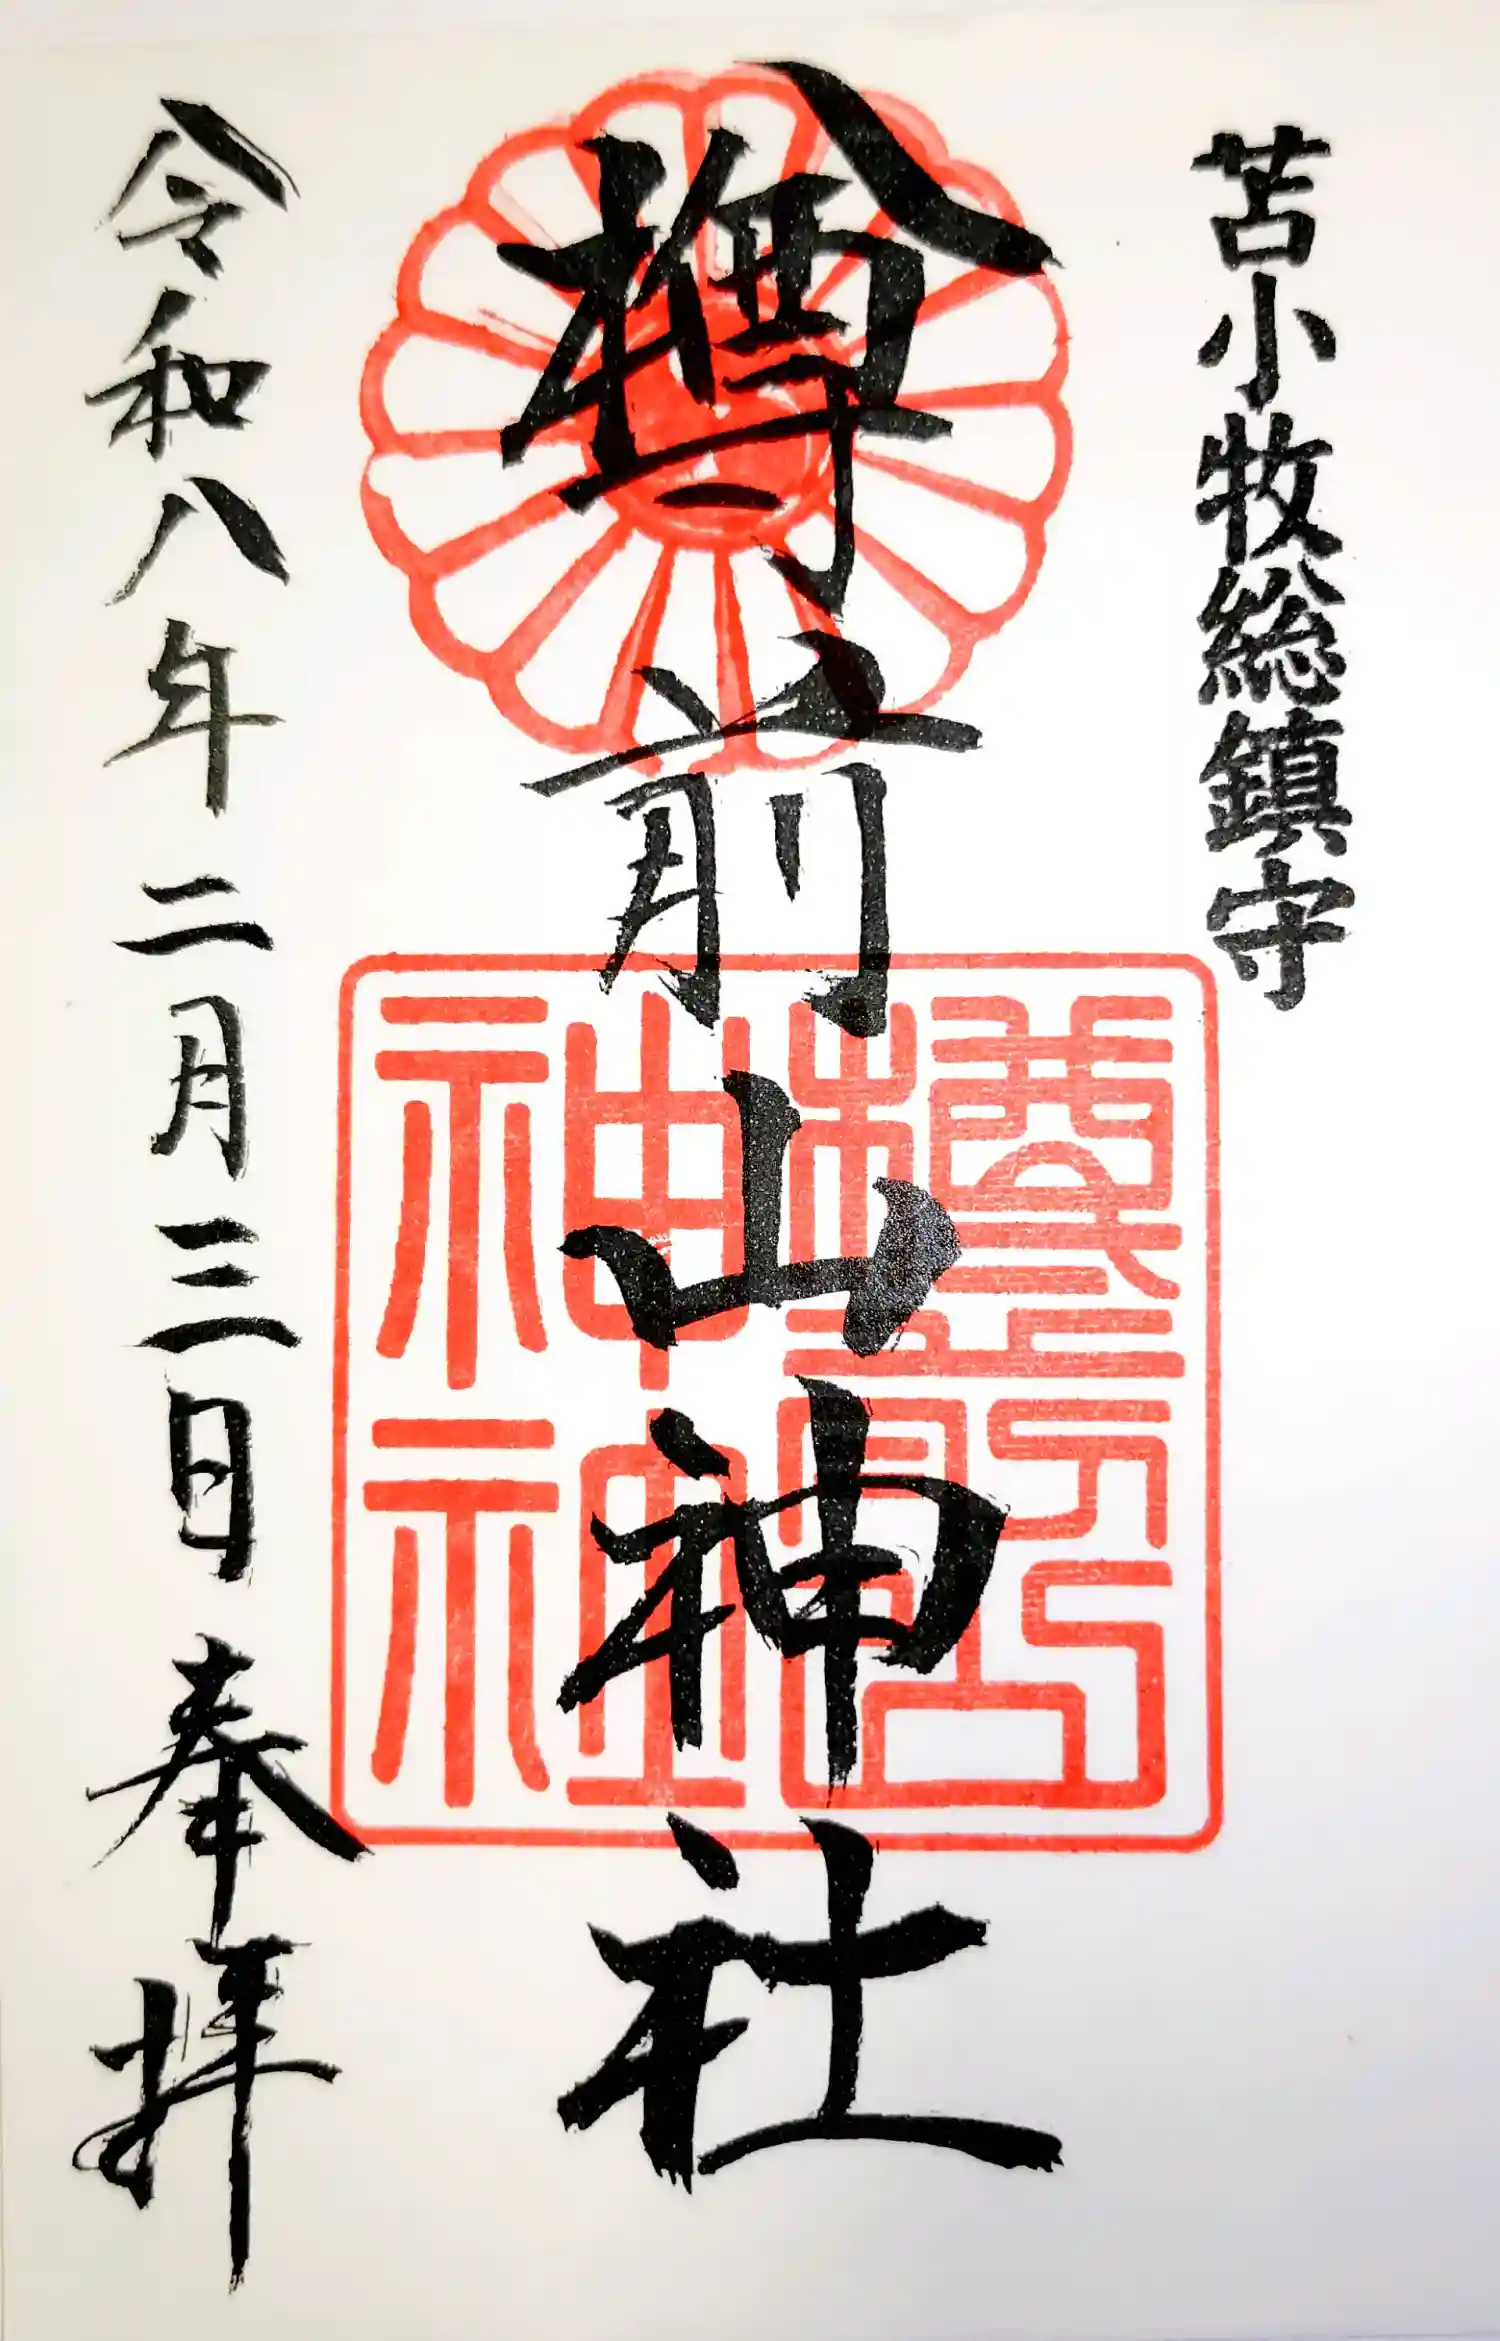 苫小牧総鎮守
樽前山神社
令和八年二月三日 奉拝
樽前山
神社